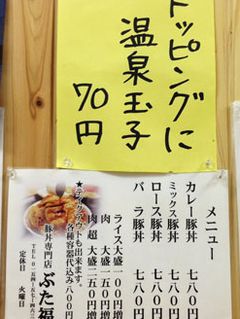 トッピングに
温泉玉子
70円
メニュー
カレー豚丼 七八〇円
ミックス豚丼 七八〇円
ロース豚丼 七八〇円
バラ豚丼 七八〇円
ライス大盛 一〇〇円増
肉 大盛 二五〇円増
肉 超大盛 五〇〇円増
★テイクアウトも出来ます。
豚丼専門店
ぶた福
定休日 火曜日